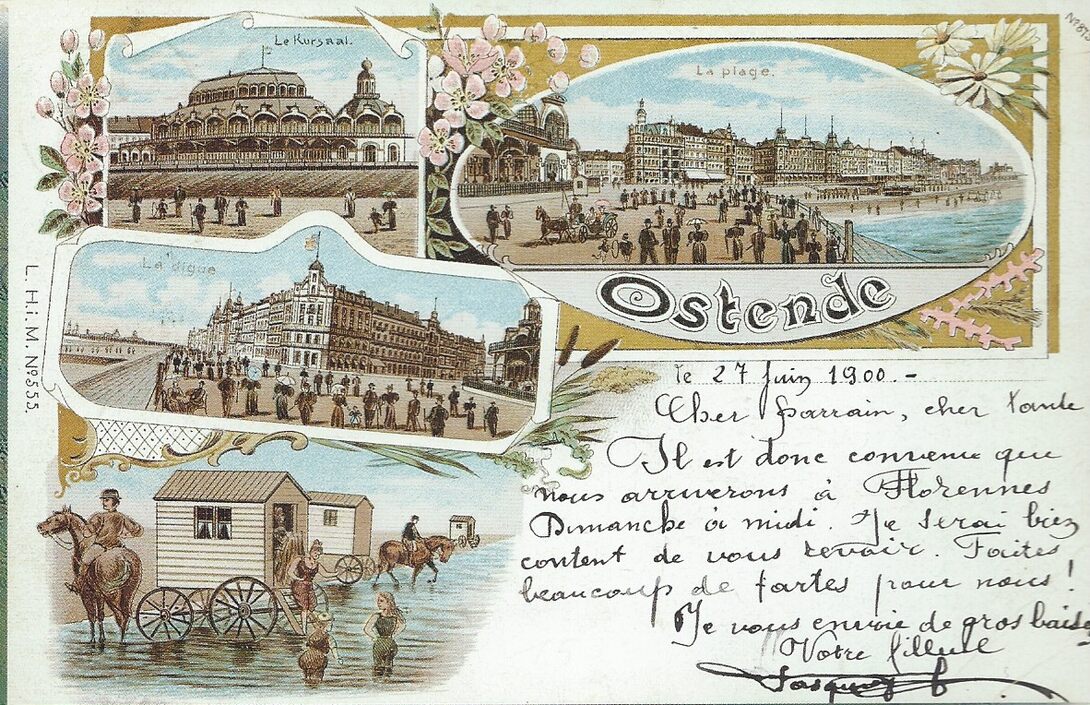 Le Kursaal.
La plage.
La digue
Ostende
L. Hi. M. No. 555.
le 27 Juin 1900.-
Cher Parrain, cher Tante
Il est donc convenu que
nous arriverons à Florennes
Dimanche à midi. Je serai bien
content de vous revoir. Faites
beaucoup de tartes pour nous!
Je vous envoie de gros baise
Votre filleul